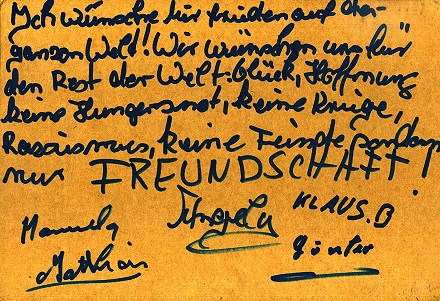 Ich wünsche für frieden auf der
ganzen Welt! Wir wünschen uns für
den Rest der Welt: Glück, Hoffnung
keine Hungersnot, keine Kriege,
Rassismus, keine Feinde sondern
nur FREUNDSCHAFT!
Manuela Angela KLAUS.B
Matthias Günter